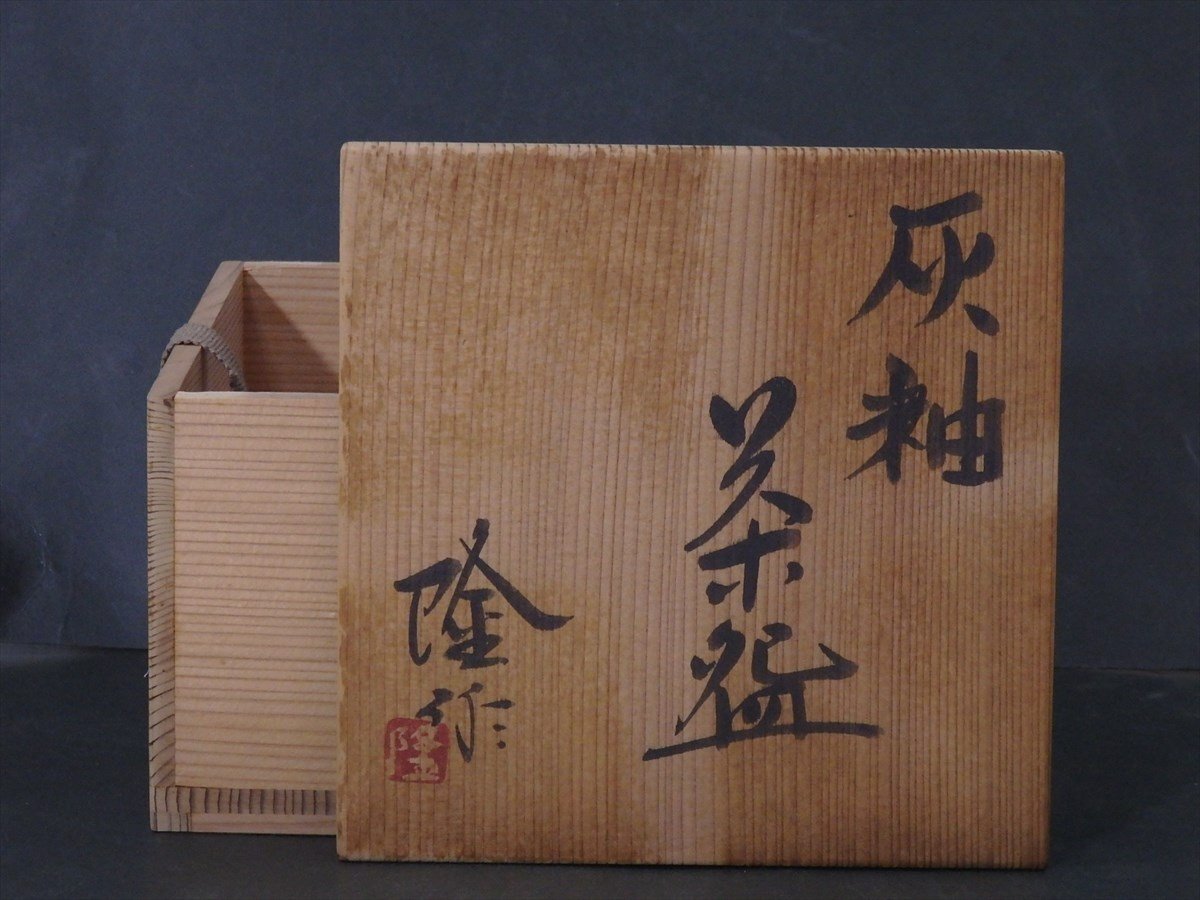 灰釉
茶盌
隆作
隆